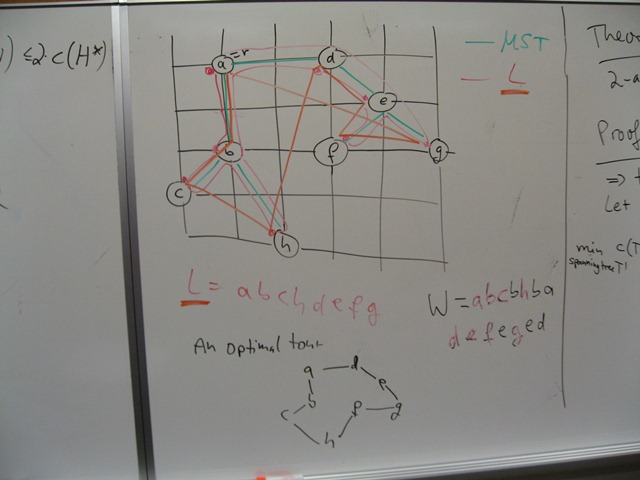 ) ≤2 c(H*)
a =r
d
e
b
f
g
c
h
— MST
— L
L = a b c h d e f g
W = a b c b h b a
d e f e g e d
An optimal tour
a — d
e
b
c
f — g
h
Theo
2-a
Proof
=> t
Let
min c(T
spanning tree T'